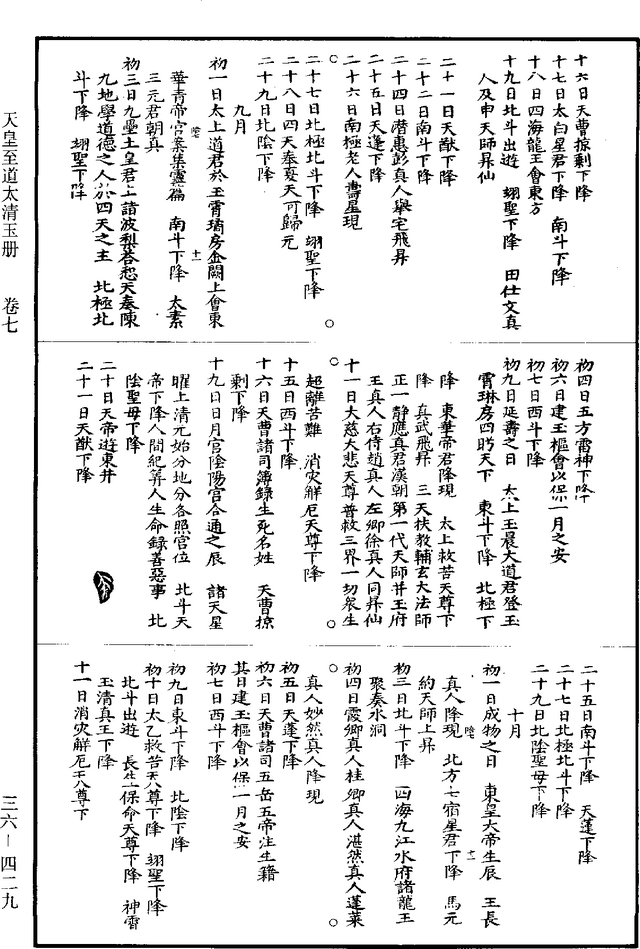 十六日天曹掠剩下降
十七日太白星君下降　南斗下降
十八日四海龍王會東方
十九日北斗出遊　翊聖下降　田仕文真
人及申天師昇仙
二十一日天猷下降
二十二日南斗下降
二十四日潛惠彭真人舉宅飛昇
二十五日天蓬下降
二十六日南極老人壽星現
二十七日北極北斗下降　翊聖下降
二十八日四天奏夏天可歸元
二十九日北陰下降
九月
初一日太上道君於玉霄琦房金闕上會東
華青帝宮案集靈篇　南斗下降　太素
三元君朝真
初三日九壘土皇君上詣波梨答惒天奏陳
九地學道德之人於四天之主　北極北
斗下降　翊聖下降
初四日五方雷神下降
初六日建玉樞會以保一月之安
初七日西斗下降
初九日延壽之日　太上玉晨大道君登玉
霄琳房四眄天下　東斗下降　北極下
降　東華帝君降現　太上救苦天尊下
降　真武飛昇　三天扶教輔玄大法師
正一靜應真君漢朝第一代天師并王府
王真人右侍趙真人左卿徐真人同昇仙
十一日大慈大悲天尊普救三界一切衆生
超離苦難　消灾解厄天尊下降
十五日西斗下降
十六日天曹諸司簿錄生死名姓　天曹掠
剩下降
十九日日月宮陰陽宮合通之辰　諸天星
曜上清元始分地分各照宮位　北斗天
帝下降人間紀筭人生命錄善惡事　北
陰聖母下降
二十日天帝遊東井
二十一日天猷下降
二十五日南斗下降　天蓬下降
二十七日北極北斗下降
二十九日北陰聖母下降
十月
初一日成物之日　東皇大帝生辰　王長
真人降現　北方七宿星君下降　馬元
約天師上昇
初三日北斗下降　四海九江水府諸龍王
聚奏水洞
初四日霞卿真人桂卿真人湛然真人蓬萊
真人妙然真人降現
初五日天蓬下降
初六日天曹諸司五岳五帝注生籍
其日建玉樞會以保一月之安
初七日西斗下降
初九日東斗下降　北陰下降
初十日太乙救苦天尊下降　翊聖下降
北斗出遊　長生保命天尊下降　神霄
玉清真王下降
十一日消灾解厄天尊下
天皇至道太清玉册　卷七
三六—四二九